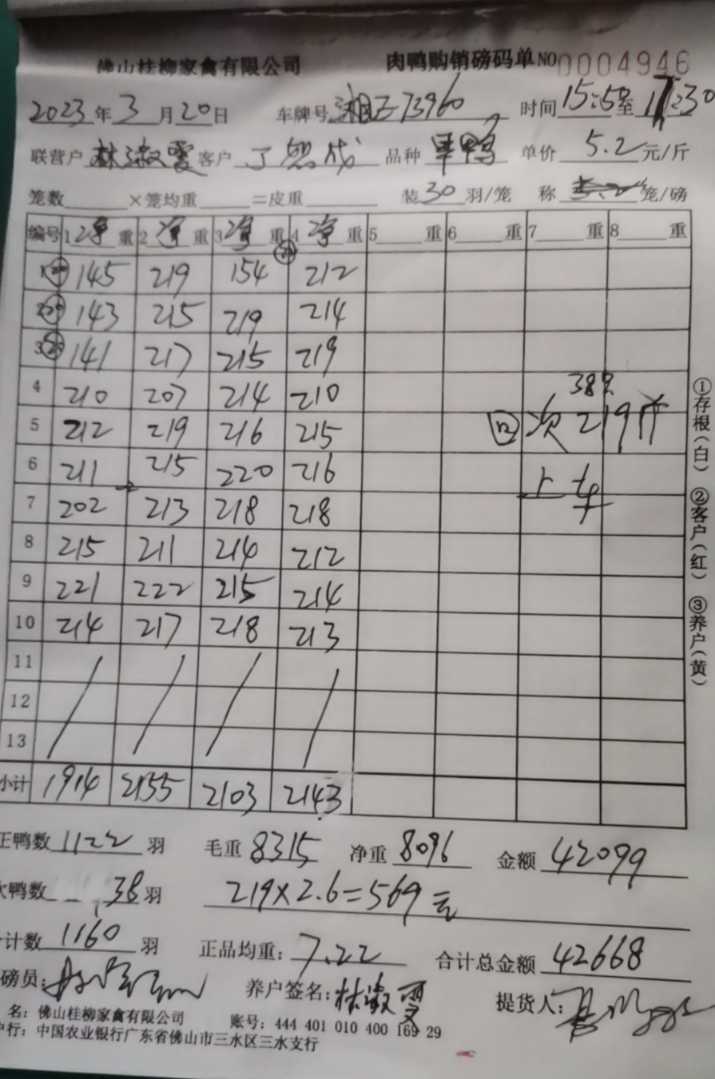 佛山桂柳家禽有限公司 肉鸭购销磅码单 NO 0004946
2023年3月20日 车牌号 湘 73960 时间 15:50至17:30
联营户 林淑雯 客户 丁 成 品种 单鸭 单价 5.2元/斤
笼数 ×笼均重 =皮重 装30羽/笼 称 笼/磅
编号 1净重 2净重 3净重 4净重 5 重 6 重 7 重 8 重
1 145 219 154 212
2 143 215 219 214
3 141 217 215 219
4 210 207 214 210
38只
5 212 219 216 215 次219斤
6 211 215 220 216 上车
7 202 213 218 218
8 215 211 214 212
9 221 222 215 214
10 214 217 218 213
11
12
13
小计 1914 2155 2103 2143
正鸭数 1122 羽 毛重 8315 净重 8096 金额 42099
次鸭数 38 羽 219×2.6=569元
合计数 1160 羽 正品均重: 7.22 合计总金额 42668
磅员: 养户签名: 林淑雯 提货人:
名: 佛山桂柳家禽有限公司 账号: 444 401 010 400 169 29
户行: 中国农业银行广东省佛山市三水区三水支行
①存根(白) ②客户(红) ③养户(黄)